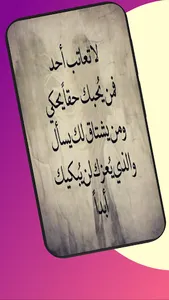 لا تعاتب أحد
فمن يُحبك حقاً يحكي
ومن يشتاق لك يسأل
والذي يُعزك لن يُبكيك
أبداً